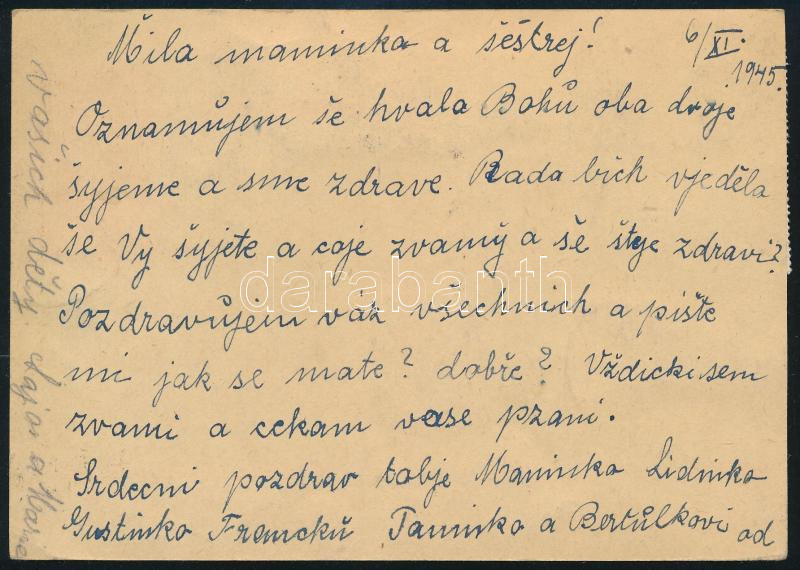 Mila maminka a šeštrej! 6/XI. 1945.
Oznamůjem še hvala Bohů oba dvoje
šyjeme a sme zdrave. Rada bich vjeděla
še Vy šyjete a coje zvamy a še šteje zdravi?
darabanth
Pozdravujem váz všechnich a pište
mi jak se mate? dobře? Vždicki sem
zvami a cekam vase pzani.
Srdecni pozdrav tobje Maminko Lidinko
Gustinko Francků Taninko a Bertůlkovi od
vašich děty. Lajos a Marie